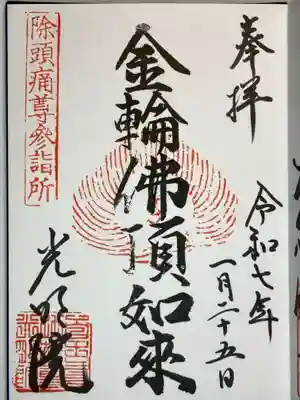 奉拝
令和七年
一月二十五日
金輪佛頂如来
除頭痛尊参詣所
光明院